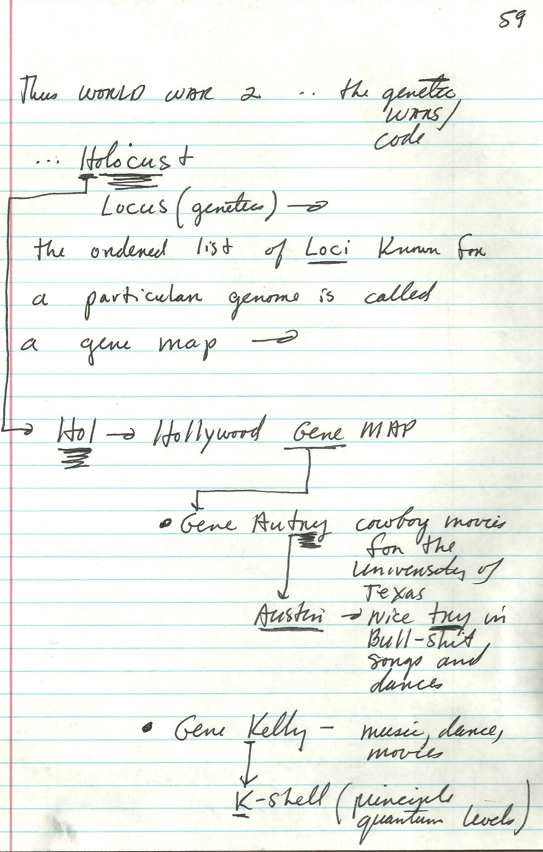 59
Thus WORLD WAR 2 .. the genetic
WARS/
code
... Holocust
Locus (genetics) →
the ordered list of Loci known for
a particular genome is called
a gene map →
→ Hol → Hollywood Gene MAP
• Gene Autry cowboy movies
for the
University of
Texas
Austin → Nice try in
Bull-shit,
songs and
dances
• Gene Kelly - music, dance,
movies
K-shell (principle
quantum levels)